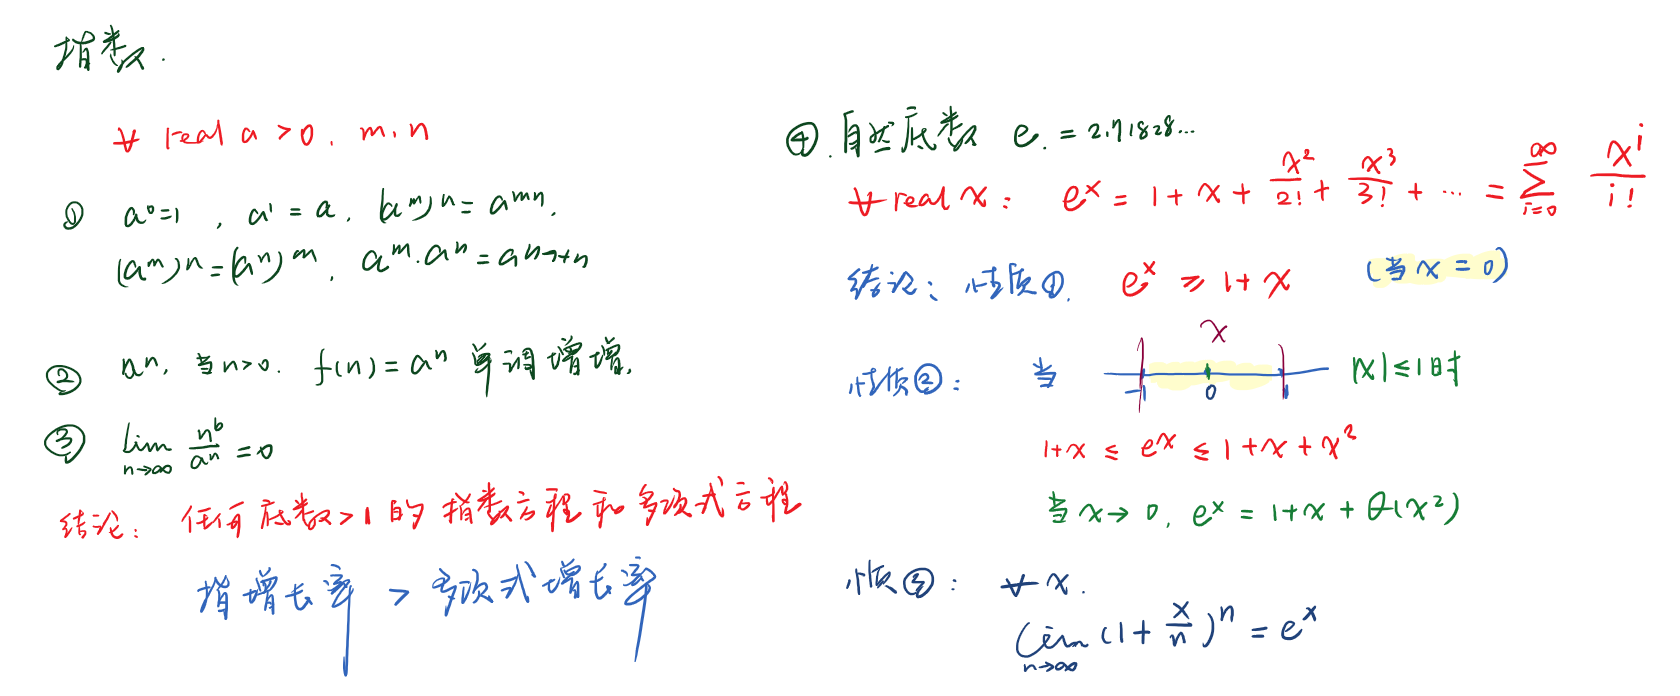 指数.
∀ real a > 0, m, n
① a⁰=1, a¹ = a, (aᵐ)ⁿ = aᵐⁿ.
(aᵐ)ⁿ = (aⁿ)ᵐ, aᵐ·aⁿ = aᵐ⁺ⁿ
② aⁿ, 当n>0. f(n) = aⁿ 单调增增.
③ lim n→∞ nᵇ/aⁿ = 0
结论: 任何底数>1的指数方程和多项式方程
指增长率 > 多项式增长率
④. 自然底数 e. = 2.71828...
∀ real x: eˣ = 1 + x + x²/2! + x³/3! + ... = ∑ i=0 ∞ xⁱ/i!
结论: 性质①. eˣ ≥ 1+x (当x=0)
性质②: 当 x -1 0 1 |x| ≤ 1时
1+x ≤ eˣ ≤ 1+x+x²
当x→0, eˣ = 1+x+θ(x²)
性质③: ∀x.
lim n→∞ (1+x/n)ⁿ = eˣ